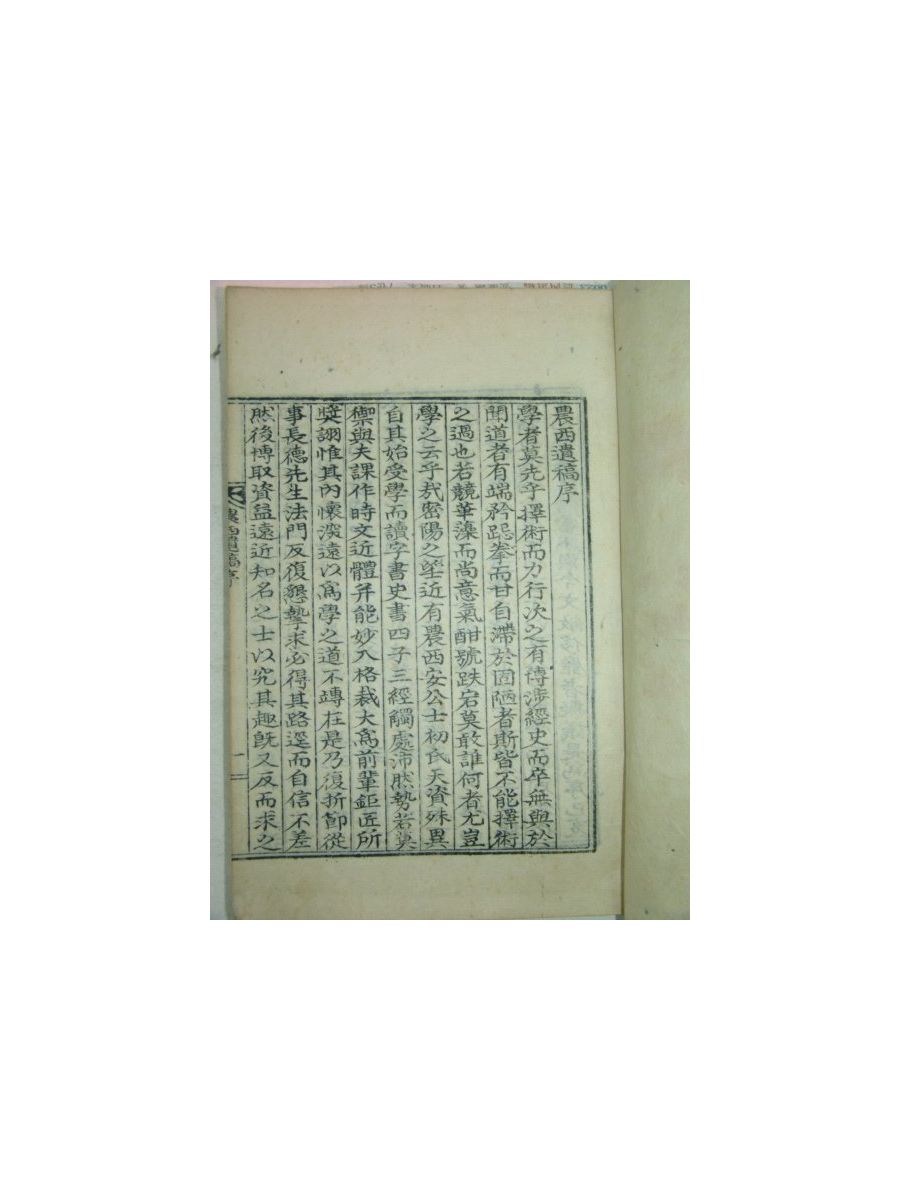 農西遺稿序
學者莫先乎擇術而力行次之有博涉經史而卒無與於
聞道者有端矜跽拳而甘自滯於固陋者斯皆不能擇術
之過也若競華藻而尚意氣酣號跌宕莫敢誰何者尤豈
學之云乎哉密陽之笙近有農西安公士初氏天資殊異
自其始受學而讀字書史書四子三經觸處沛然勢若莫
禦與夫課作時文近體并能妙入格裁大爲前輩鉅匠所
獎詡惟其內懷深遠以爲學之道不専在是乃復折節從
事長德先生法門反復懇摯求必得其路逕而自信不差
然後博取資益遠近知名之士以究其趣旣又反而求之
農西遺稿序
一